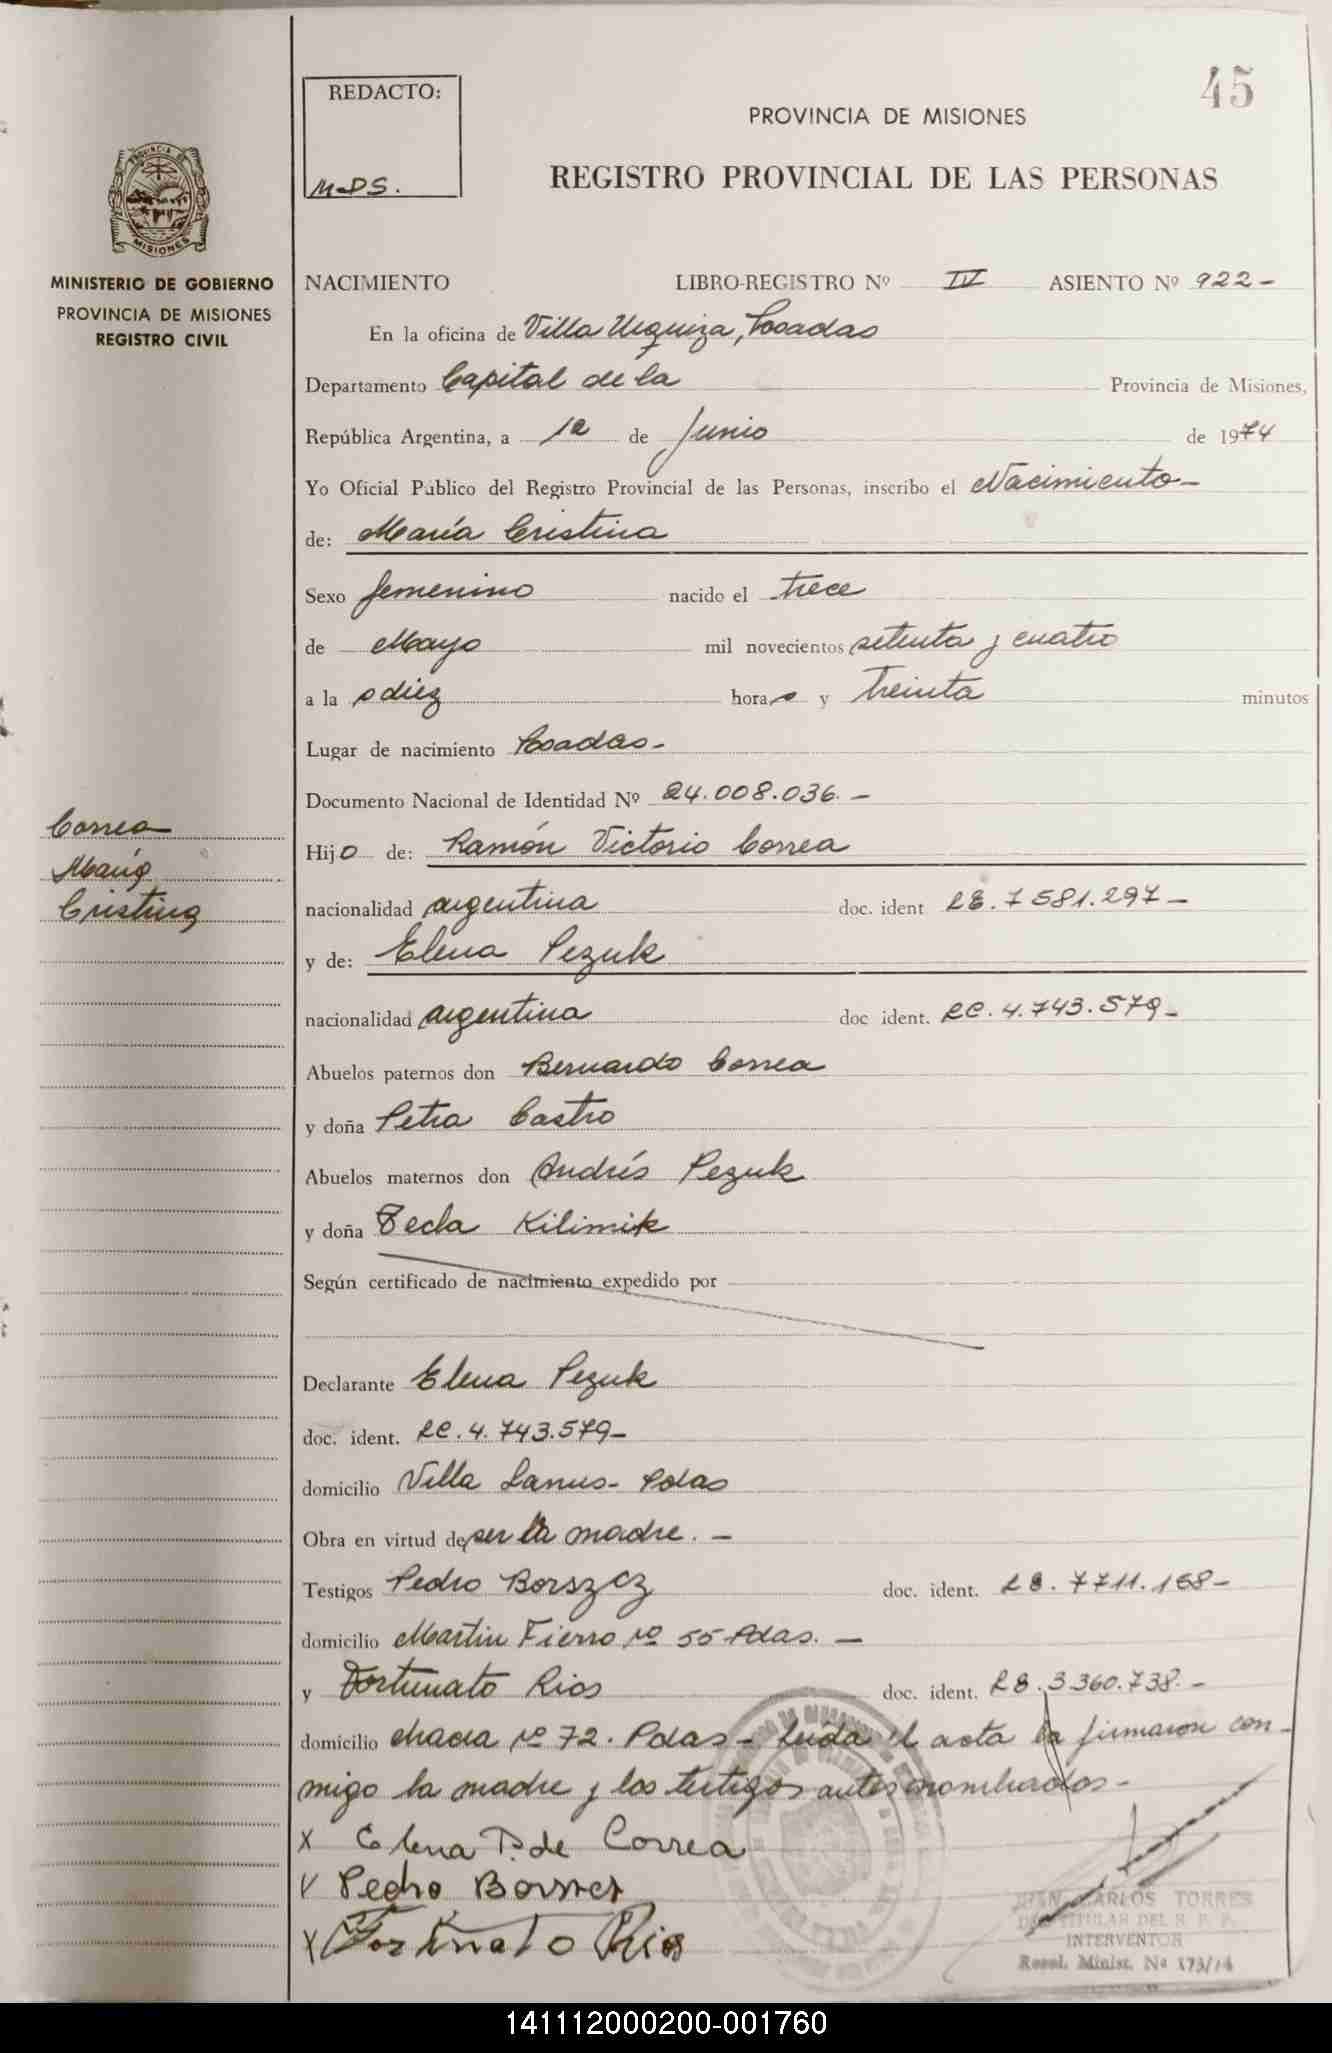 45
REDACTO:
M-PS.
PROVINCIA DE MISIONES
REGISTRO PROVINCIAL DE LAS PERSONAS
PROVINCIA DE
MISIONES
MINISTERIO DE GOBIERNO
PROVINCIA DE MISIONES
REGISTRO CIVIL
NACIMIENTO LIBRO-REGISTRO Nº IV ASIENTO Nº 922-
En la oficina de Villa Urquiza, Posadas
Departamento Capital de la Provincia de Misiones,
República Argentina, a 12 de Junio de 1974
Yo Oficial Público del Registro Provincial de las Personas, inscribo el Nacimiento-
de: María Cristina
Sexo femenino nacido el trece
de Mayo mil novecientos setenta y cuatro
a la s diez hora s y treinta minutos
Lugar de nacimiento Posadas-
Documento Nacional de Identidad Nº 24.008.036.-
Correa
María
Cristina
Hijo de: Ramón Victorio Correa
nacionalidad argentina doc. ident LE. 7581.297-
y de: Elena Pezuk
nacionalidad argentina doc ident. LC. 4.743.579-
Abuelos paternos don Bernardo Correa
y doña Petra Castro
Abuelos maternos don Andrés Pezuk
y doña Tecla Kilimik
Según certificado de nacimiento expedido por
Declarante Elena Pezuk
doc. ident. LC. 4.743.579-
domicilio Villa Lanus- Pdas
Obra en virtud de ser la madre.-
Testigos Pedro Borszcz doc. ident. LE. 7711.168-
domicilio Martin Fierro nº 55 Pdas.-
y Fortunato Rios doc. ident. LE. 3.360.738.-
domicilio chacra nº 72. Pdas- Leida el acta la firmaron con-
migo la madre y los testigos antes nombrados-
X Elena P. de Correa
V Pedro
X Fortunato Rios
JUAN CARLOS TORRES
TITULAR DEL R. P. P.
INTERVENTOR
Resol. Minist. Nº 173/74
141112000200-001760